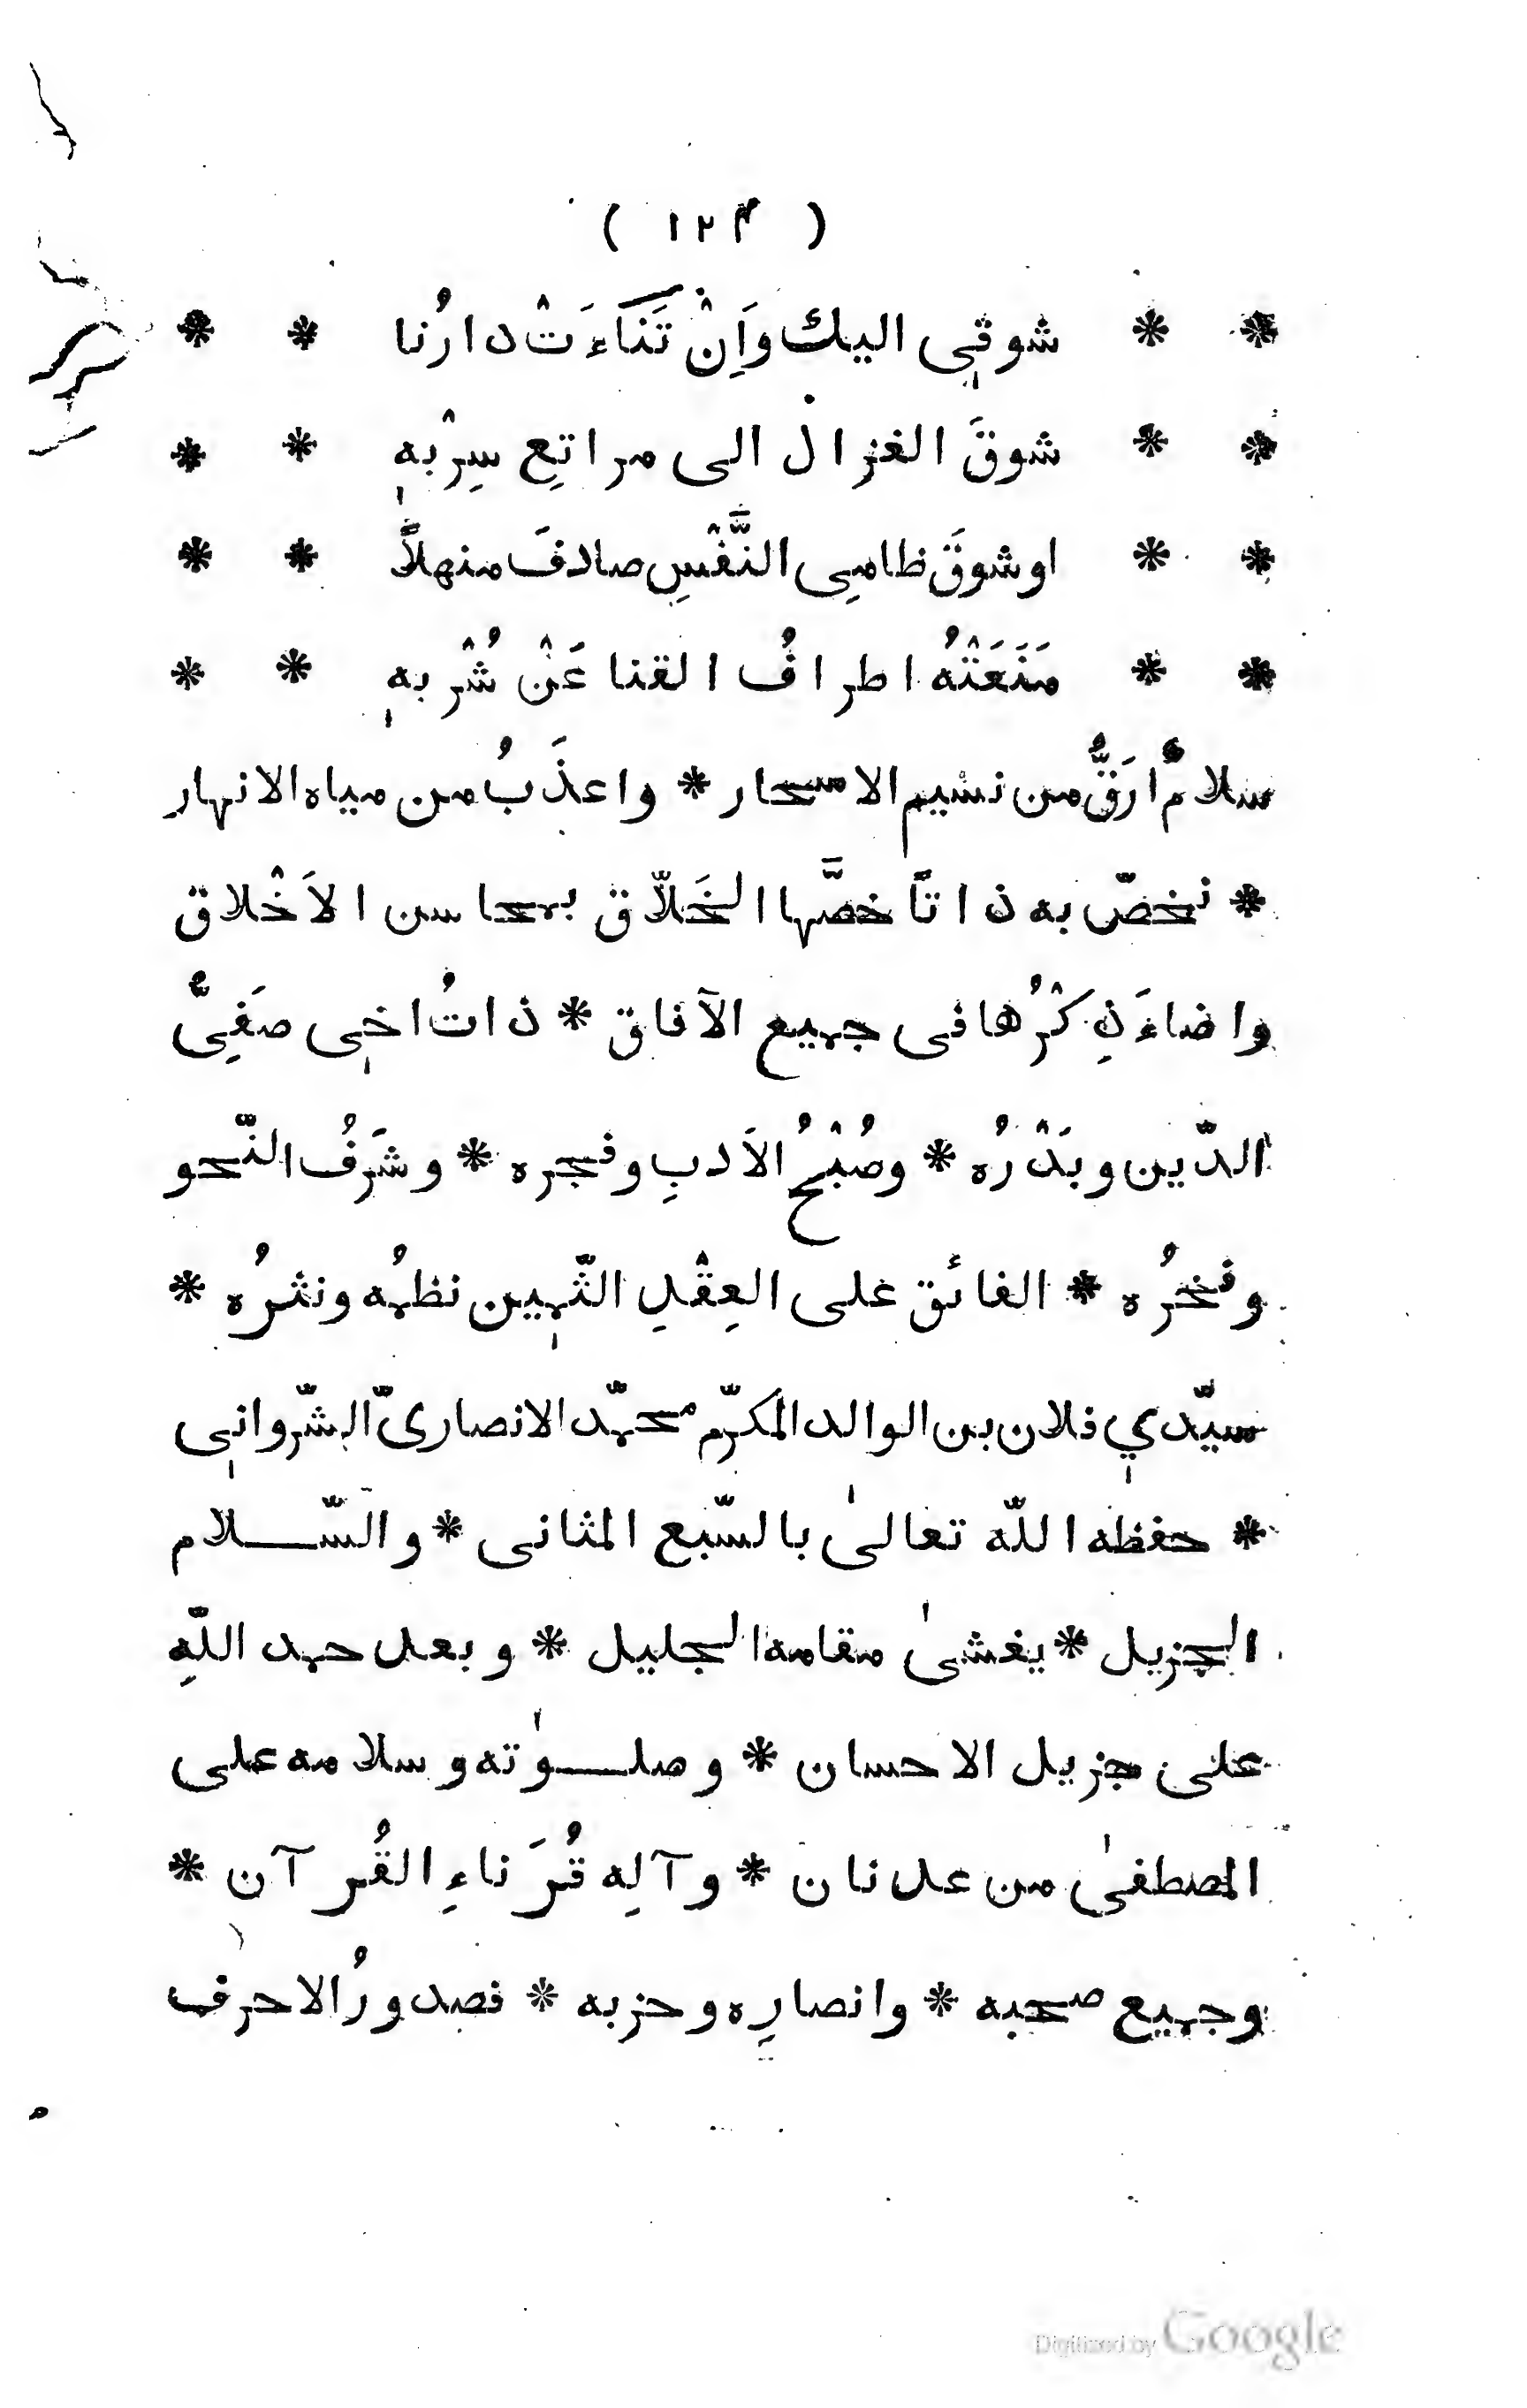 ( ١٢٤ )
* * شوقي اليك وَاِنْ تَنَاءَتْ دارُنا * *
* * شوقَ الغزال الى مراتعِ سِرْبهٖ * *
* * او شوقَ ظامىِ النَّفْسِ صادفَ منهلاً * *
* * مَنَعَتْهُ اطرافُ القنا عَنْ شُرْبهٖ * *
سلامٌ ارَقُّ من نسيم الاسحار * واعذَبُ من مياه الانهار
* نخصّ به ذاتاً خصَّها الخَلاّق بمحاسن الاَخْلاق
واضاءَ ذِكْرُها فى جميع الآفاق * ذاتُ اخي صَفِىُّ
الدّين وبَدْرُه * وصُبْحُ الاَدبِ وفجره * وشَرَفُ النّحو
وفخرُه * الفائق على العِقْدِ الثّمين نظمُه ونثرُه *
سيّدي فلان بن الوالد المكرّم محمّد الانصارىّ الشّرواني
* حفظه اللّه تعالىٰ بالسّبع المثانى * والسّلام
الجزيل * يغشىٰ مقامه الجليل * وبعد حمد اللّهِ
على جزيل الاحسان * وصلوٰته وسلامه على
المصطفىٰ من عدنان * وآلِه قُرَناءِ القُرآن *
وجميع صحبه * وانصارِه وحزبه * فصدورُ الاحرف
Digitized by Google